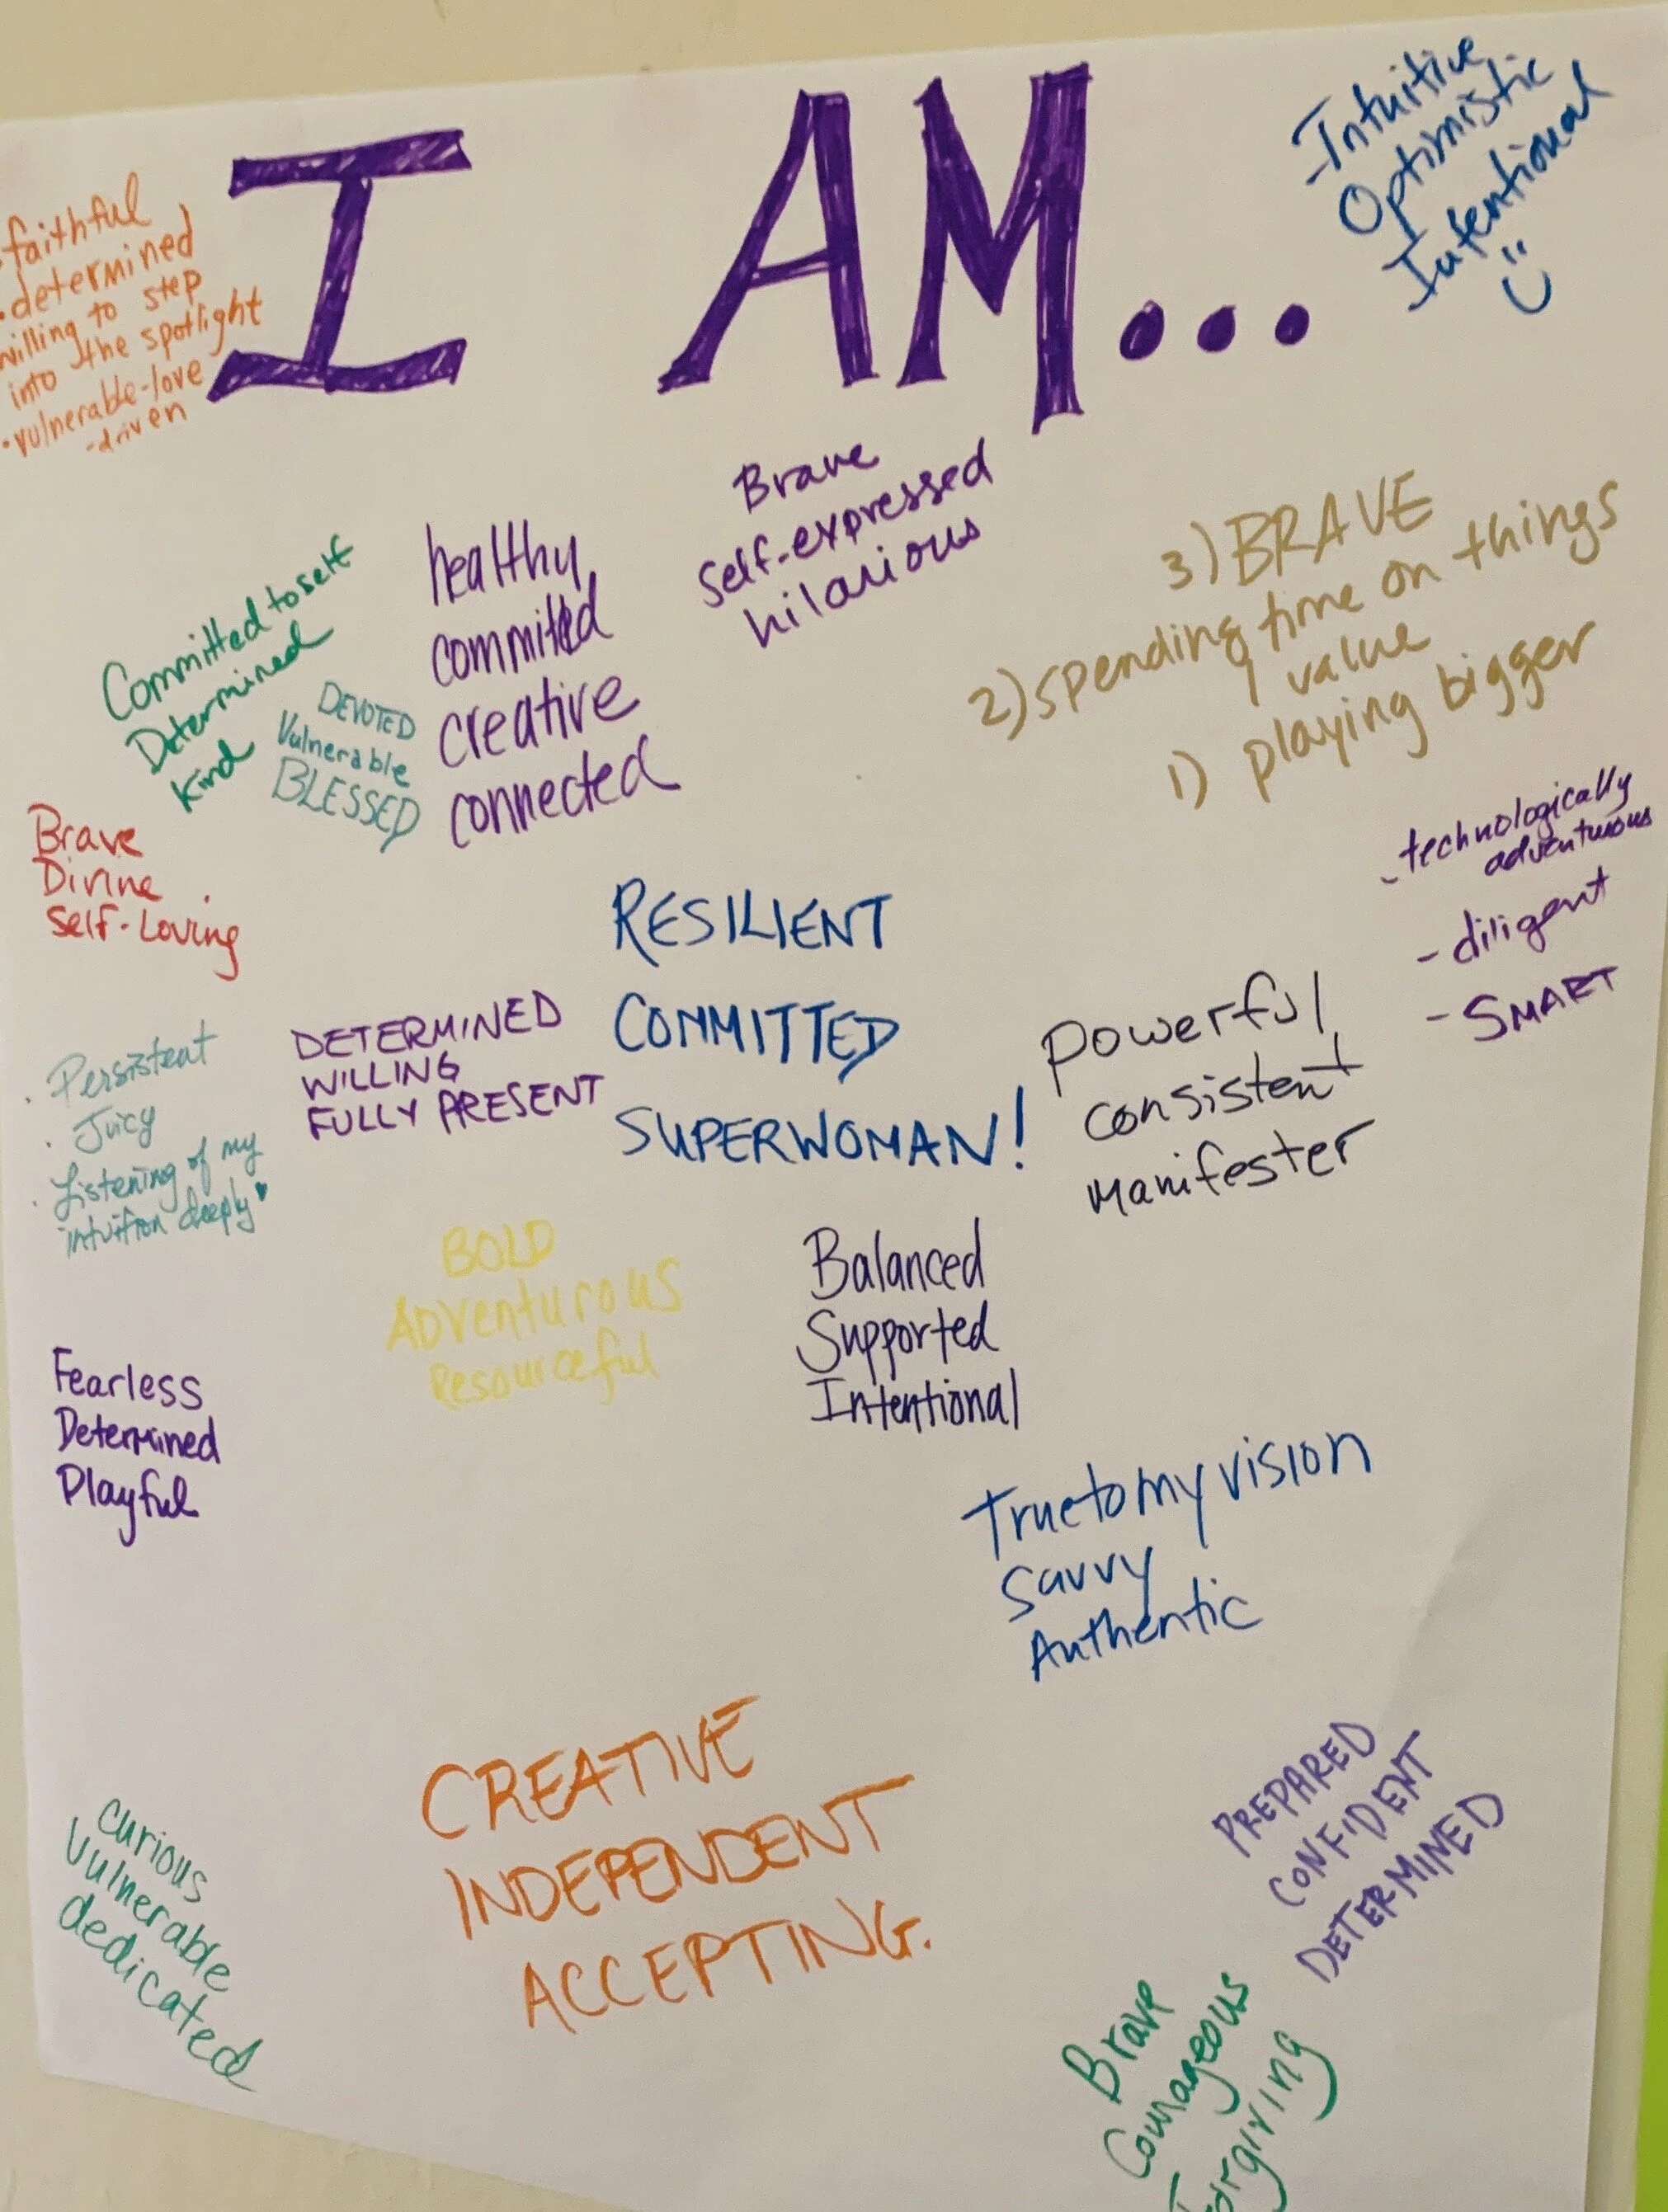 I AM...
-Intuitive
Optimistic
Intentional
• faithful
• determined
willing to step
into the spotlight
• vulnerable-love
-driven
Brave
Self-expressed
hilarious
healthy
committed
creative
connected
Committed to self
Determined
Kind
DEVOTED
Vulnerable
BLESSED
3) BRAVE
2) spending time on things
I value
1) playing bigger
Brave
Divine
Self-Loving
- technologically
adventurous
- diligent
- SMART
RESILIENT
COMMITTED
SUPERWOMAN!
DETERMINED
WILLING
FULLY PRESENT
powerful
consistent
manifester
• Persistent
• Juicy
• Listening of my
intuition deeply
BOLD
ADVenturous
Resourceful
Balanced
Supported
Intentional
Fearless
Determined
Playful
True to my vision
Savvy
Authentic
CREATIVE
INDEPENDENT
ACCEPTING.
PREPARED
CONFIDENT
DETERMINED
curious
Vulnerable
dedicated
Brave
Courageous
Forgiving